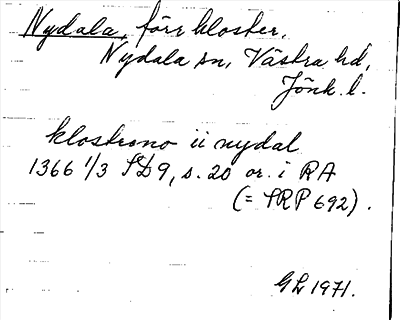 Nydala, förr kloster.
Nydala sn, Västra hd,
Jönk. l.
klostreno ii nydal
1366 1/3 SD 9, s. 20 or. i RA
(= SRP 692).
GL 1971.